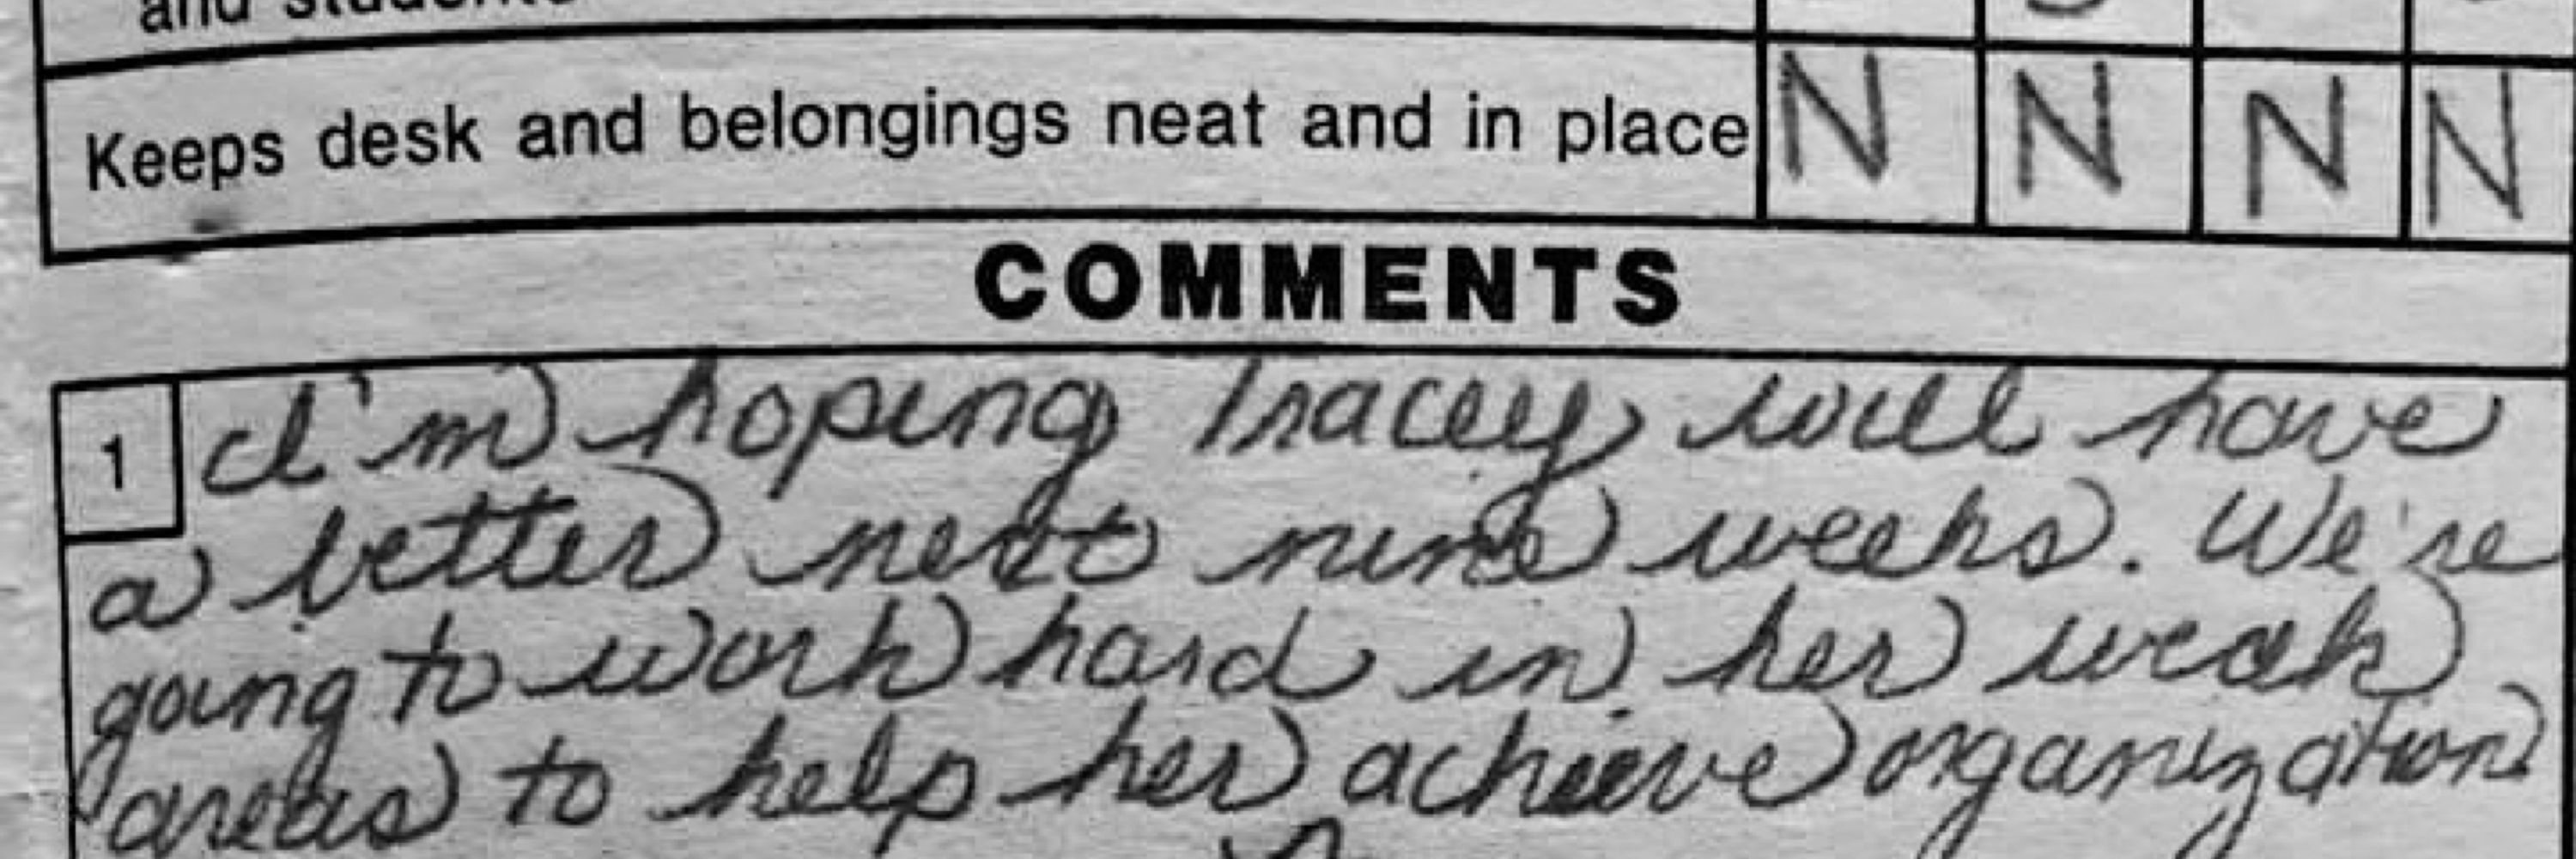 and students
Keeps desk and belongings neat and in place N N N N
COMMENTS
1 I'm hoping Tracey will have
a better next nine weeks. We're
going to work hard in her weak
areas to help her achieve organization